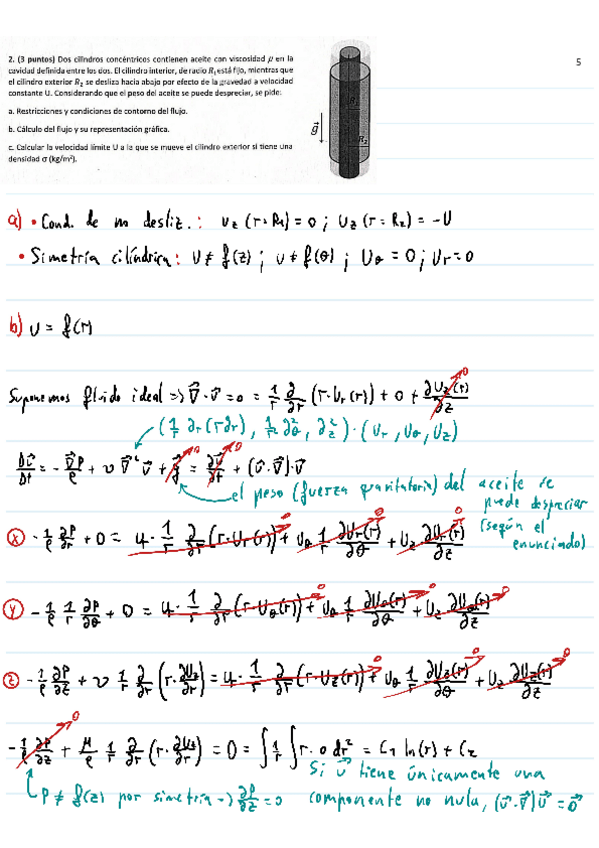 5
2. (3 puntos) Dos cilindros concéntricos contienen aceite con viscosidad μ en la
cavidad definida entre los dos. El cilindro interior, de radio R₁ está fijo, mientras que
el cilindro exterior R₂ se desliza hacia abajo por efecto de la gravedad a velocidad
constante U. Considerando que el peso del aceite se puede despreciar, se pide:
a. Restricciones y condiciones de contorno del flujo.
b. Cálculo del flujo y su representación gráfica.
c. Calcular la velocidad límite U a la que se mueve el cilindro exterior si tiene una
densidad σ (kg/m²).
g⃗
R₁
R₂
a) • Cond. de no desliz.: u_z (r=R₁) = 0 ; u_z (r=R₂) = -U
• Simetría cilíndrica: u ≠ f(z) ; u ≠ f(θ) ; U_θ = 0 ; U_r = 0
b) u = f(r)
Suponemos fluido ideal => ∇⃗·v⃗ = 0 = 1/r ∂/∂r (r·U_r(r)) + 0 + ∂U_z(r)/∂z 0
(1/r ∂r(r∂r), 1/r² ∂²θ, ∂²z)·(U_r, U_θ, U_z)
Dv⃗/Dt = - ∇⃗P/ρ + ν ∇⃗² v⃗ + g⃗ 0 = ∂v⃗/∂t 0 + (v⃗·∇⃗)·v⃗
el peso (fuerza gravitatoria) del aceite se
puede despreciar
(según el
enunciado)
(x) - 1/ρ ∂P/∂r + 0 = u · 1/r ∂/∂r (r·U_r(r)) 0 + U_θ 1/r ∂U_r(r)/∂θ 0 + U_z ∂U_r(r)/∂z 0
(y) - 1/ρ 1/r ∂P/∂θ + 0 = u · 1/r ∂/∂r (r·U_θ(r)) 0 + U_θ 1/r ∂U_θ(r)/∂θ 0 + U_z ∂U_θ(r)/∂z 0
(z) - 1/ρ ∂P/∂z + ν 1/r ∂/∂r (r·∂U_z/∂r) = u · 1/r ∂/∂r (r·U_z(r)) 0 + U_θ 1/r ∂U_z(r)/∂θ 0 + U_z ∂U_z(r)/∂z 0
- 1/ρ ∂P/∂z 0 + μ/ρ 1/r ∂/∂r (r·∂U_z/∂r) = 0 = ∫ 1/r ∫ r·0 dr² = C₁ ln(r) + C₂
Si v⃗ tiene únicamente una
P ≠ f(z) por simetría -> ∂P/∂z = 0 componente no nula, (v⃗·∇⃗)v⃗ = 0⃗